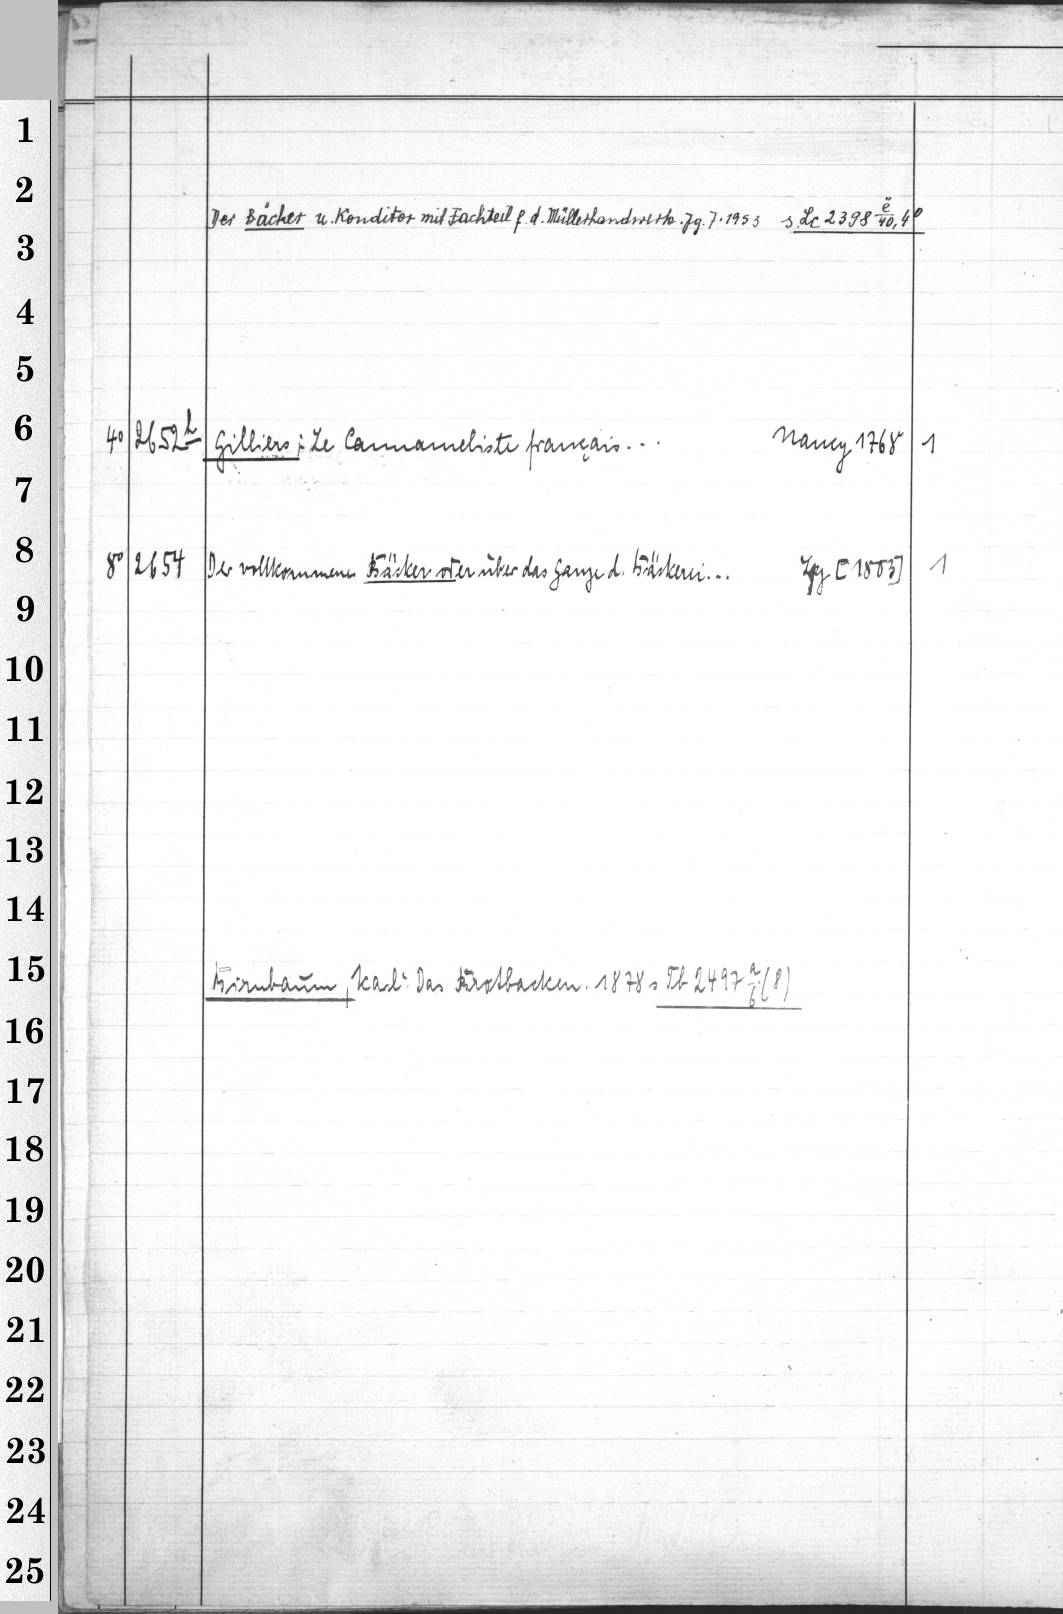 1
2
Der Bäcker u. Konditor mit Fachteil f. d. Müllerhandwerk. Jg. 7. 1953 s. Lc 2398 ë/40, 4°
3
4
5
6
4° 2652 h Gilliers: Le Cannameliste français... Nancy 1768 1
7
8
8° 2654 Der vollkommene Bäcker oder über das Ganze d. Bäckerei... Lpg [1803] 1
9
10
11
12
13
14
15
Birnbaum, Karl: Das Brotbacken. 1878 s Tb 2497 a/6 (8)
16
17
18
19
20
21
22
23
24
25